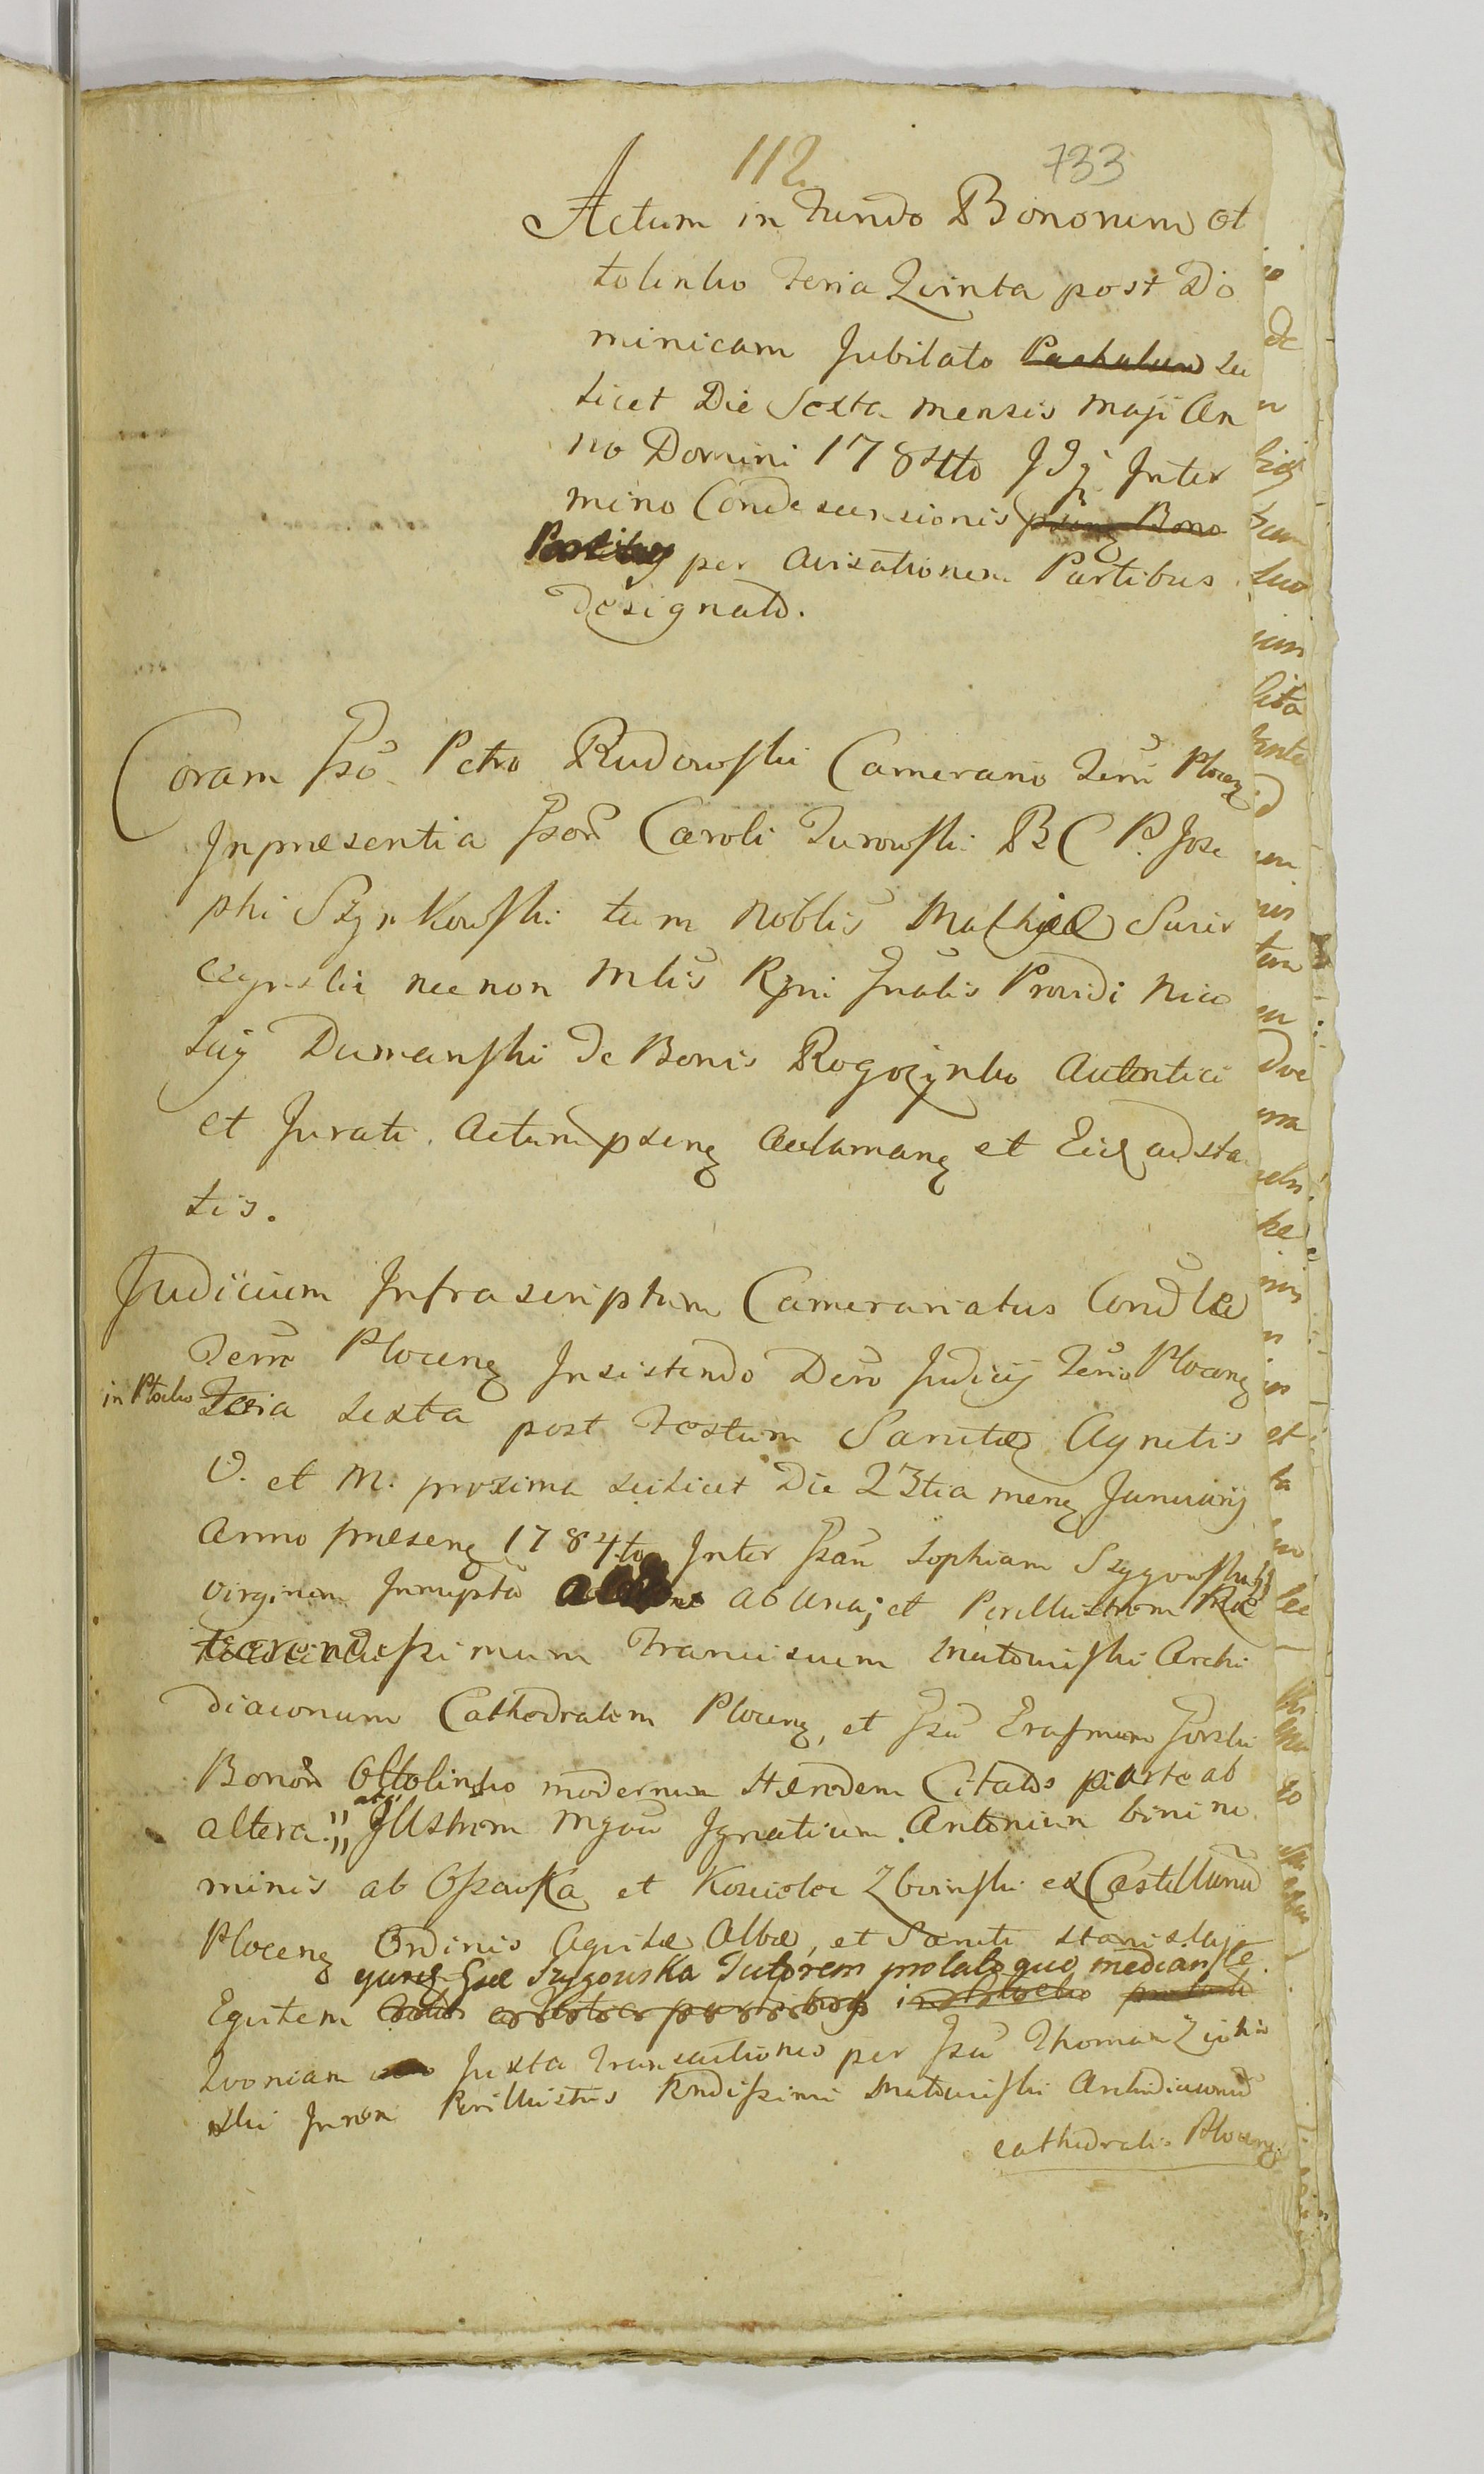 112 733
Actum in Fundo Bonorum Ot
tolinko Feria Quinta post Do
minicam Jubilato Paschalem Sci
licet Die Sexta mensis Maji An
no Domini 1784to Inter
mino Condescensionis
per Avisationem Partibus
designato.
Coram Petro Rudowski Camerario Terrae Plocen
Inpraesentia Caroli Turowski B C P. Jose
phi Szynkowski tum Noblis Mathiae
necnon Mlis Rgni Gnalis Providi Nico
laij Dumanski de Bonis Rogozynko Autentici
et Jurati. Actum psens Acclamans et Eid adsta
tis.
Judicium Infrascriptum Camerariatus Condlae
Terrae Plocens Insistendo Decro Judicij Terris Plocens
in Plocko Feria Sexta post Festum Sanctae Agnetis
V. et M. proxima scilicet Die 23tia mens Januarij
Anno praesens 1784to Inter Sophiam Szygowska
virginem Innupta ab una; et Perillustrem Re
simum Franciscum Matowiski Archi
diaconum Cathedralem Plocens, et Erasmum Gorski
Bonor Ottolinko modernum Haeredem Citatos parte ab
altera. Illstrem Mgcu Ignatium Antonium bini no
minis ab Ossowka et Kosciołec Zboinski ex Castellanu
Plocens Ordinis Aquilae Albae, et Sancti Stanislaji
Gsae Szygowska Tutorem prolato quo mediante
Equitem
Quoniam Juxta Transactiones per Thomam
ski Perillustris Rndissimi Matowiski Archidiaconu
cathedralis Plocens